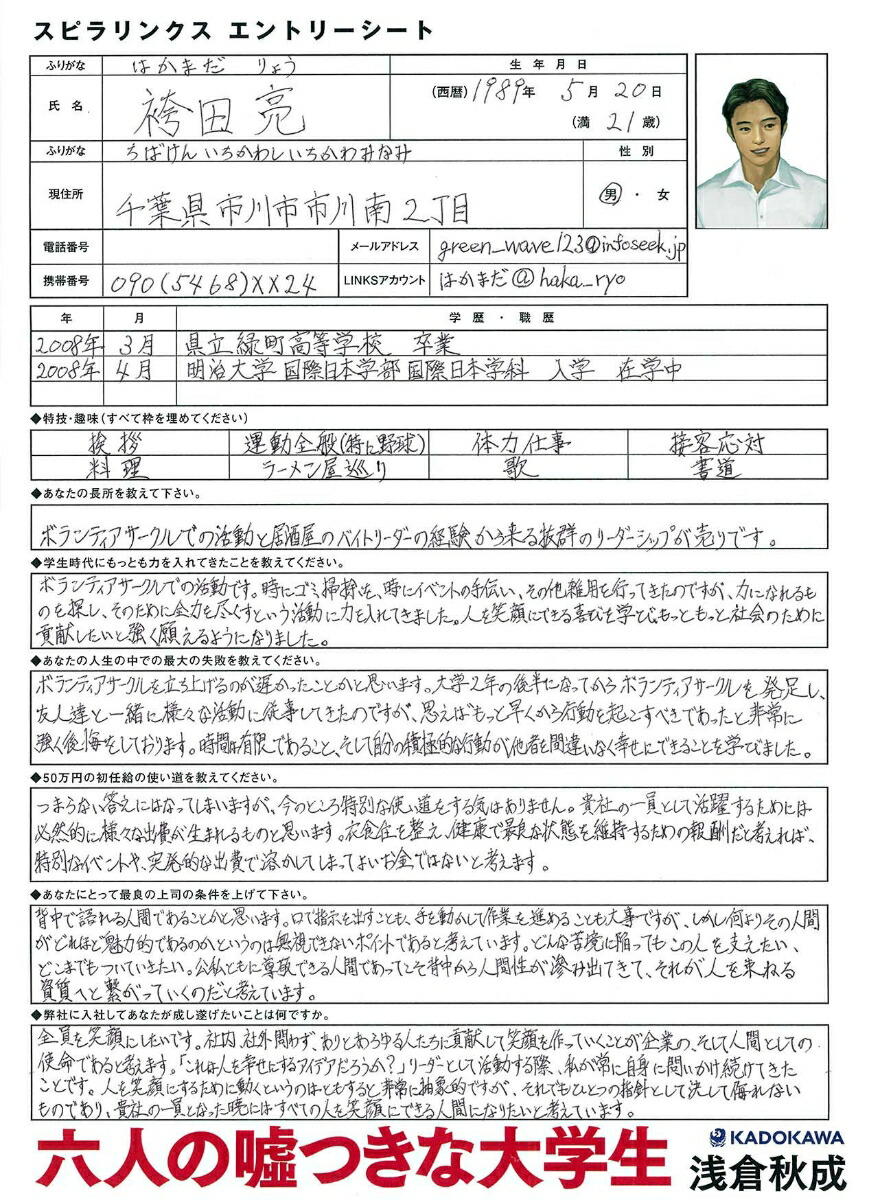 スピラリンクス エントリーシート
ふりがな はかまだ りょう 生年月日
氏名 袴田亮 (西暦)1989年 5月 20日
(満 21歳)
ふりがな ちばけんいちかわしいちかわみなみ 性別
現住所 千葉県市川市市川南2丁目 男・女
電話番号 メールアドレス green_wave123@infoseek.jp
携帯番号 090(5468)XX24 LINKSアカウント はかまだ@haka_ryo
年 月 学歴・職歴
2008年 3月 県立緑町高等学校 卒業
2008年 4月 明治大学 国際日本学部 国際日本学科 入学 在学中
◆特技・趣味(すべて枠を埋めてください)
挨拶 運動全般(特に野球) 体力仕事 接客応対
料理 ラーメン屋巡り 歌 書道
◆あなたの長所を教えて下さい。
ボランティアサークルでの活動と居酒屋のバイトリーダーの経験から来る抜群のリーダーシップが売りです。
◆学生時代にもっとも力を入れてきたことを教えてください。
ボランティアサークルでの活動です。時にゴミ掃除を、時にイベントの手伝い、その他雑用を行ってきたのですが、力になれるも
のを探し、そのために全力を尽くすという活動に力を入れてきました。人を笑顔にできる喜びを学び、もっともっと社会のために
貢献したいと強く願えるようになりました。
◆あなたの人生の中での最大の失敗を教えてください。
ボランティアサークルを立ち上げるのが遅かったことかと思います。大学2年の後半になってからボランティアサークルを発足し、
友人達と一緒に様々な活動に従事してきたのですが、思えばもっと早くから行動を起こすべきであったと非常に
強く後悔をしております。時間は有限であること、そして自分の積極的な行動が他者を間違いなく幸せにできることを学びました。
◆50万円の初任給の使い道を教えてください。
つまらない答えにはなってしまいますが、今のところ特別な使い道をする気はありません。貴社の一員として活躍するためには
必然的に様々な出費が生まれるものと思います。衣食住を整え、健康で最良な状態を維持するための報酬だと考えれば、
特別なイベントや、突発的な出費で溶かしてしまってよいお金ではないと考えます。
◆あなたにとって最良の上司の条件を上げて下さい。
背中で語れる人間であることかと思います。口で指示を出すことも、手を動かして作業を進めることも大事ですが、しかし何よりその人間
がどれほど魅力的であるのかというのは無視できないポイントであると考えています。どんな苦境に陥ってもこの人を支えたい、
どこまでもついていきたい。公私ともに尊敬できる人間であってこそ背中から人間性が滲み出てきて、それが人を束ねる
資質へと繋がっていくのだと考えています。
◆弊社に入社してあなたが成し遂げたいことは何ですか。
全員を笑顔にしたいです。社内、社外問わず、ありとあらゆる人たちに貢献して笑顔を作っていくことが企業の、そして人間としての
使命であると考えます。「これは人を幸せにするアイデアだろうか?」リーダーとして活動する際、私が常に自身に問いかけ続けてきた
ことです。人を笑顔にするために動くというのはともすると非常に抽象的ですが、それでもひとつの指針として決して侮れない
ものであり、貴社の一員となった暁にはすべての人を笑顔にできる人間になりたいと考えています。
六人の嘘つきな大学生
KADOKAWA
浅倉秋成